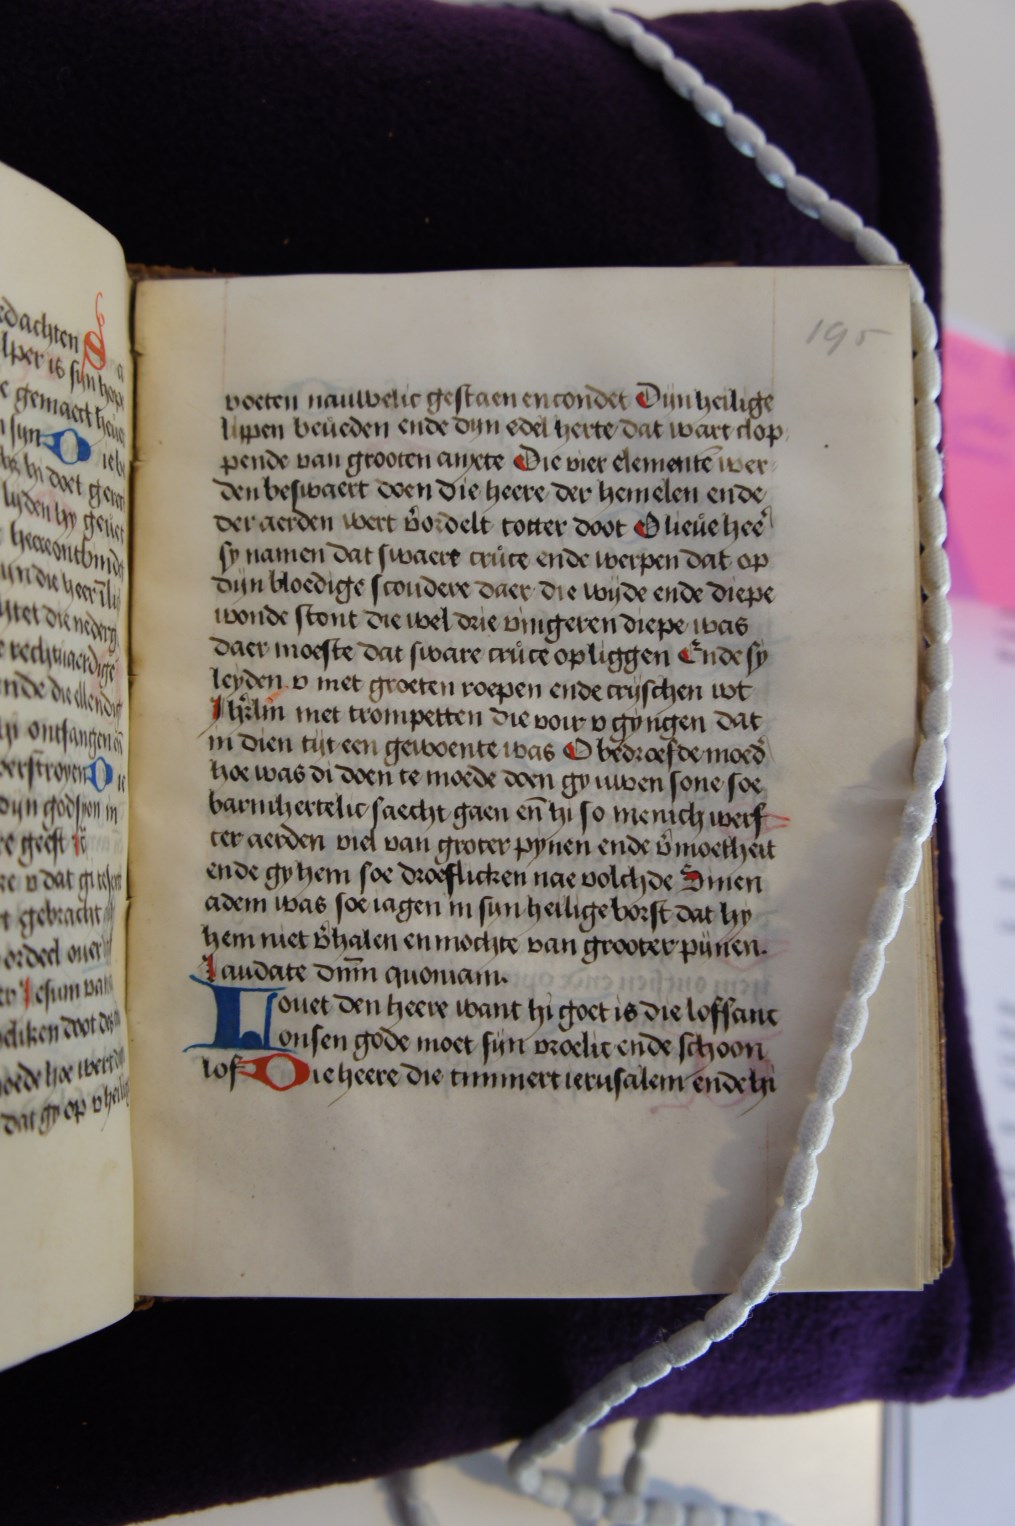 edachten S
lper is syn hop
e gemaect heue
n syn D ieb
by hy doet gerec
lyden hy geuet
heere ontbindt
die heer
die nederg
rechtuaerdige
ende die ellendig
ontfangen
verstroyen D ie
dyn god syon in
re geest
v dat gi
t gebracht
ordeel ouer
Iesum van
eliken doot
moede hoe wert
dat gy op v heilig
195
voeten nauwelic gestaen en condet Dijn heilige
lippen beueden ende dyn edel herte dat wart clop
pende van grooten anxte Die vier elementē wer
den beswaert doen die heere der hemelen ende
der aerden wert v̄ordelt totter doot O lieue hee
sy namen dat swaere cruce ende werpen dat op
dyn bloedige scoudere daer die wyde ende diepe
wonde stont die wel drie vingeren diepe was
daer moeste dat sware cruce op liggen Ende sy
leyden v met groeten roepen ende cryschen wt
Ihrl̄m met trompetten die voir v gyngen dat
in dien tyt een gewoente was O bedroefde moed
hoe was di doen te moede doen gy uwen sone soe
barmhertelic saecht gaen en̄ hi so menich werf
ter aerden viel van groter pynen ende v̄moetheit
ende gy hem soe droeflicken nae volchde Sinen
adem was soe iagen in syn heilige borst dat hy
hem niet v̄halen en mochte van grooter pijnen.
Laudate dn̄m quoniam.
Louet den heere want hi goet is die loffanc
onsen gode moet syn vroelic ende schoon
lof Die heere die timmert ierusalem ende hi